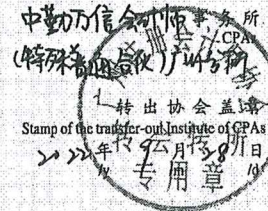 中勤万信会计师事务所
CPAs
(特殊普通合伙)广州分所
转出协会盖章
Stamp of the transfer-out Institute of CPAs
2022年9月28日
专用章